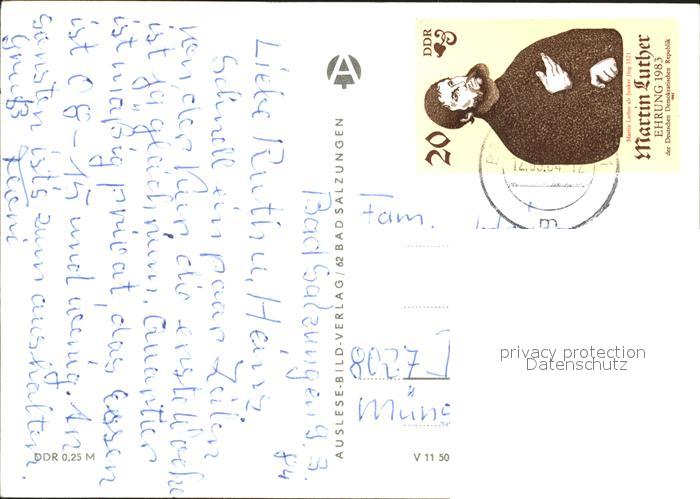 Bad Salzungen 9.3.84
Liebe Ruth u. Heinz
Schnell ein paar Zeilen
von der Kur die erste Woche
ist ja gleich rum. Quartier
ist mäßig privat, das Essen
ist 08-15 und wenig. An
sonsten ist's zum aushalten.
Gruß
DDR 0,25 M
AUSLESE-BILD-VERLAG / 62 BAD SALZUNGEN
V 11 50
DDR
20
Martin Luther als Junker Jörg 1521
Martin Luther
EHRUNG 1983
der Deutschen Demokratischen Republik
Fam.
8027
privacy protection
Datenschutz